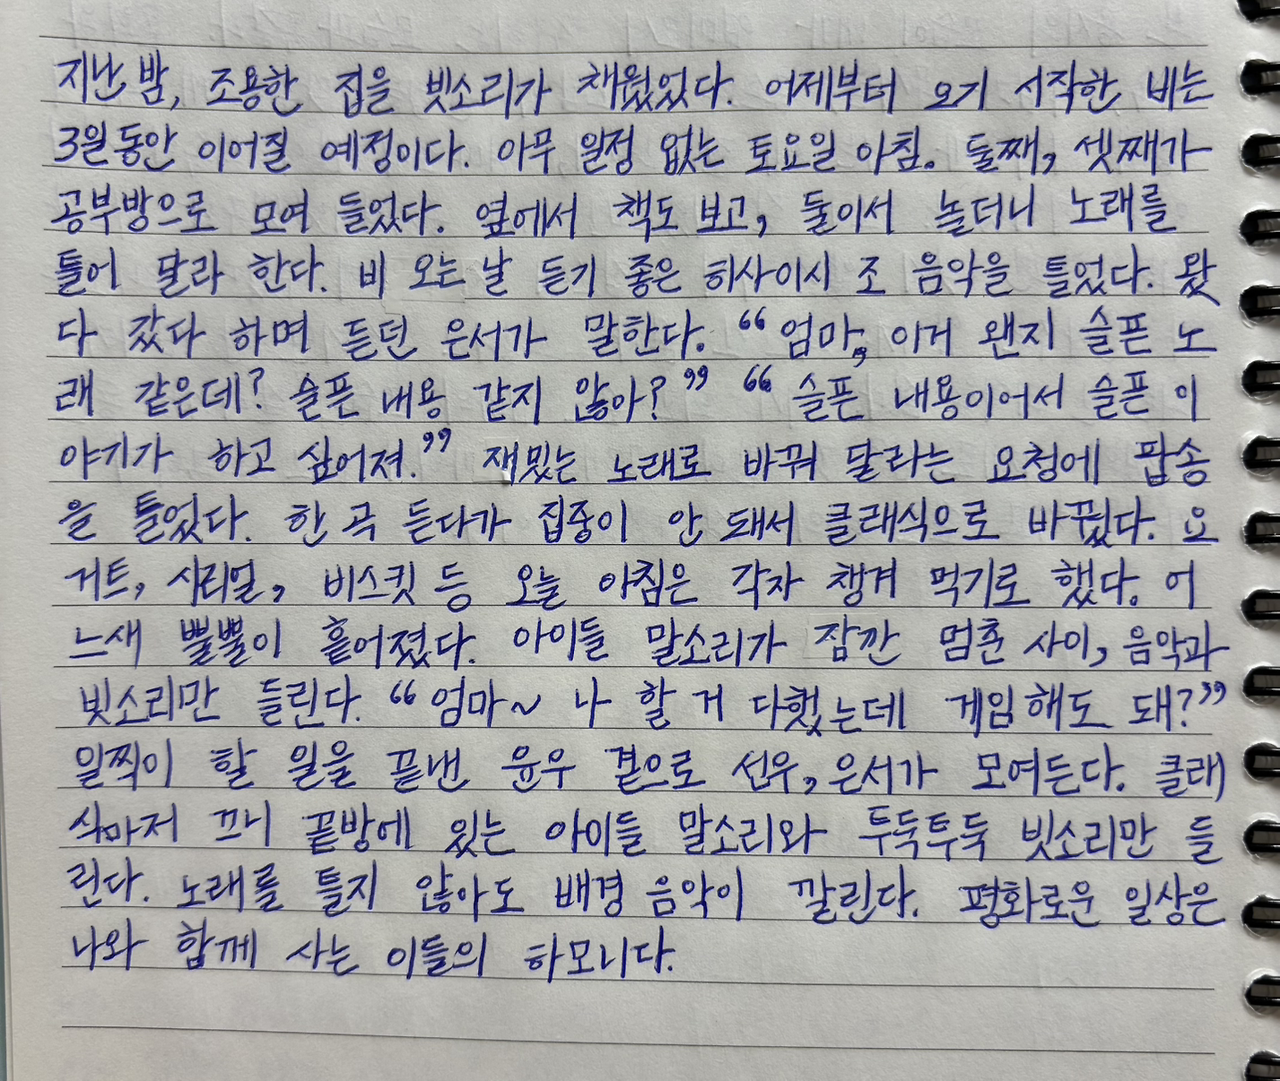 지난 밤, 조용한 집을 빗소리가 채웠었다. 어제부터 오기 시작한 비는
3일동안 이어질 예정이다. 아무 일정 없는 토요일 아침. 둘째, 셋째가
공부방으로 모여 들었다. 옆에서 책도 보고, 둘이서 놀더니 노래를
틀어 달라 한다. 비 오는 날 듣기 좋은 히사이시 조 음악을 틀었다. 왔
다 갔다 하며 듣던 은서가 말한다. “엄마, 이거 왠지 슬픈 노
래 같은데? 슬픈 내용 같지 않아?” “슬픈 내용이어서 슬픈 이
야기가 하고 싶어져.” 재밌는 노래로 바꿔 달라는 요청에 팝송
을 틀었다. 한 곡 듣다가 집중이 안 돼서 클래식으로 바꿨다. 요
거트, 시리얼, 비스킷 등 오늘 아침은 각자 챙겨 먹기로 했다. 어
느새 뿔뿔이 흩어졌다. 아이들 말소리가 잠깐 멈춘 사이, 음악과
빗소리만 들린다. “엄마~ 나 할 거 다했는데 게임해도 돼?”
일찍이 할 일을 끝낸 윤우 곁으로 선우, 은서가 모여든다. 클래
식마저 끄니 끝방에 있는 아이들 말소리와 투둑투둑 빗소리만 들
린다. 노래를 틀지 않아도 배경 음악이 깔린다. 평화로운 일상은
나와 함께 사는 이들의 하모니다.